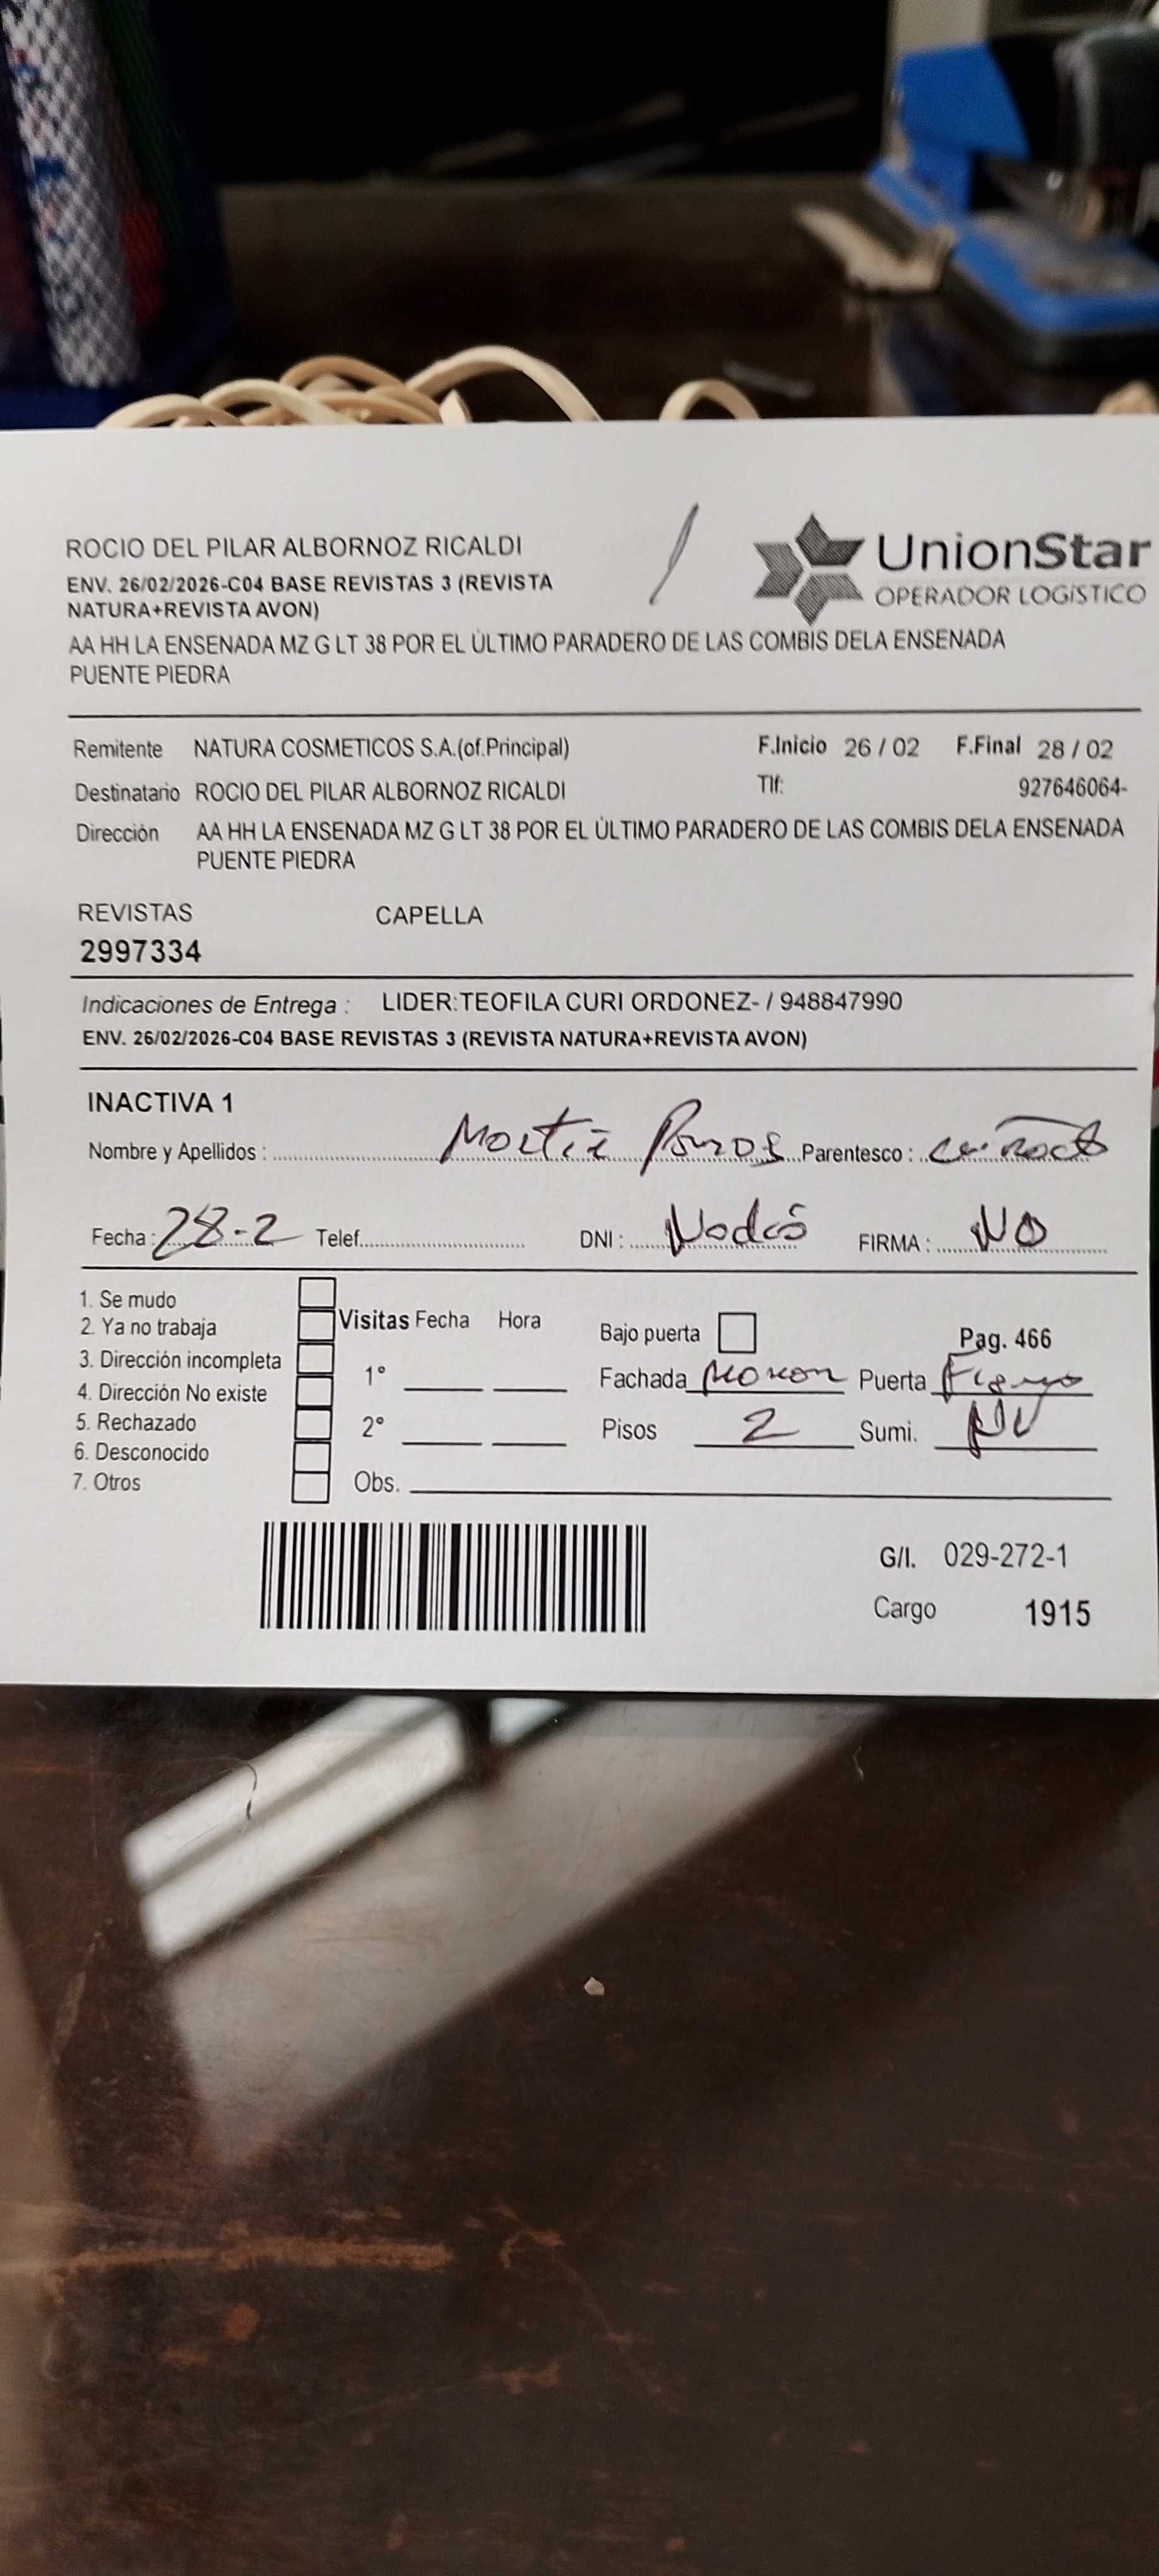 ROCIO DEL PILAR ALBORNOZ RICALDI
ENV. 26/02/2026-C04 BASE REVISTAS 3 (REVISTA
NATURA+REVISTA AVON)
UnionStar
OPERADOR LOGÍSTICO
AA HH LA ENSENADA MZ G LT 38 POR EL ÚLTIMO PARADERO DE LAS COMBIS DELA ENSENADA
PUENTE PIEDRA
Remitente NATURA COSMETICOS S.A.(of.Principal) F.Inicio 26 / 02 F.Final 28 / 02
Destinatario ROCIO DEL PILAR ALBORNOZ RICALDI Tlf: 927646064-
Dirección AA HH LA ENSENADA MZ G LT 38 POR EL ÚLTIMO PARADERO DE LAS COMBIS DELA ENSENADA
PUENTE PIEDRA
REVISTAS CAPELLA
2997334
Indicaciones de Entrega : LIDER:TEOFILA CURI ORDONEZ- / 948847990
ENV. 26/02/2026-C04 BASE REVISTAS 3 (REVISTA NATURA+REVISTA AVON)
INACTIVA 1
Nombre y Apellidos : Parentesco :
Fecha : 28-2 Telef. DNI : FIRMA : NO
1. Se mudo
2. Ya no trabaja
3. Dirección incompleta
4. Dirección No existe
5. Rechazado
6. Desconocido
7. Otros
Visitas Fecha Hora
1°
2°
Obs.
Bajo puerta Pag. 466
Fachada Puerta
Pisos 2 Sumi.
G/I. 029-272-1
Cargo 1915